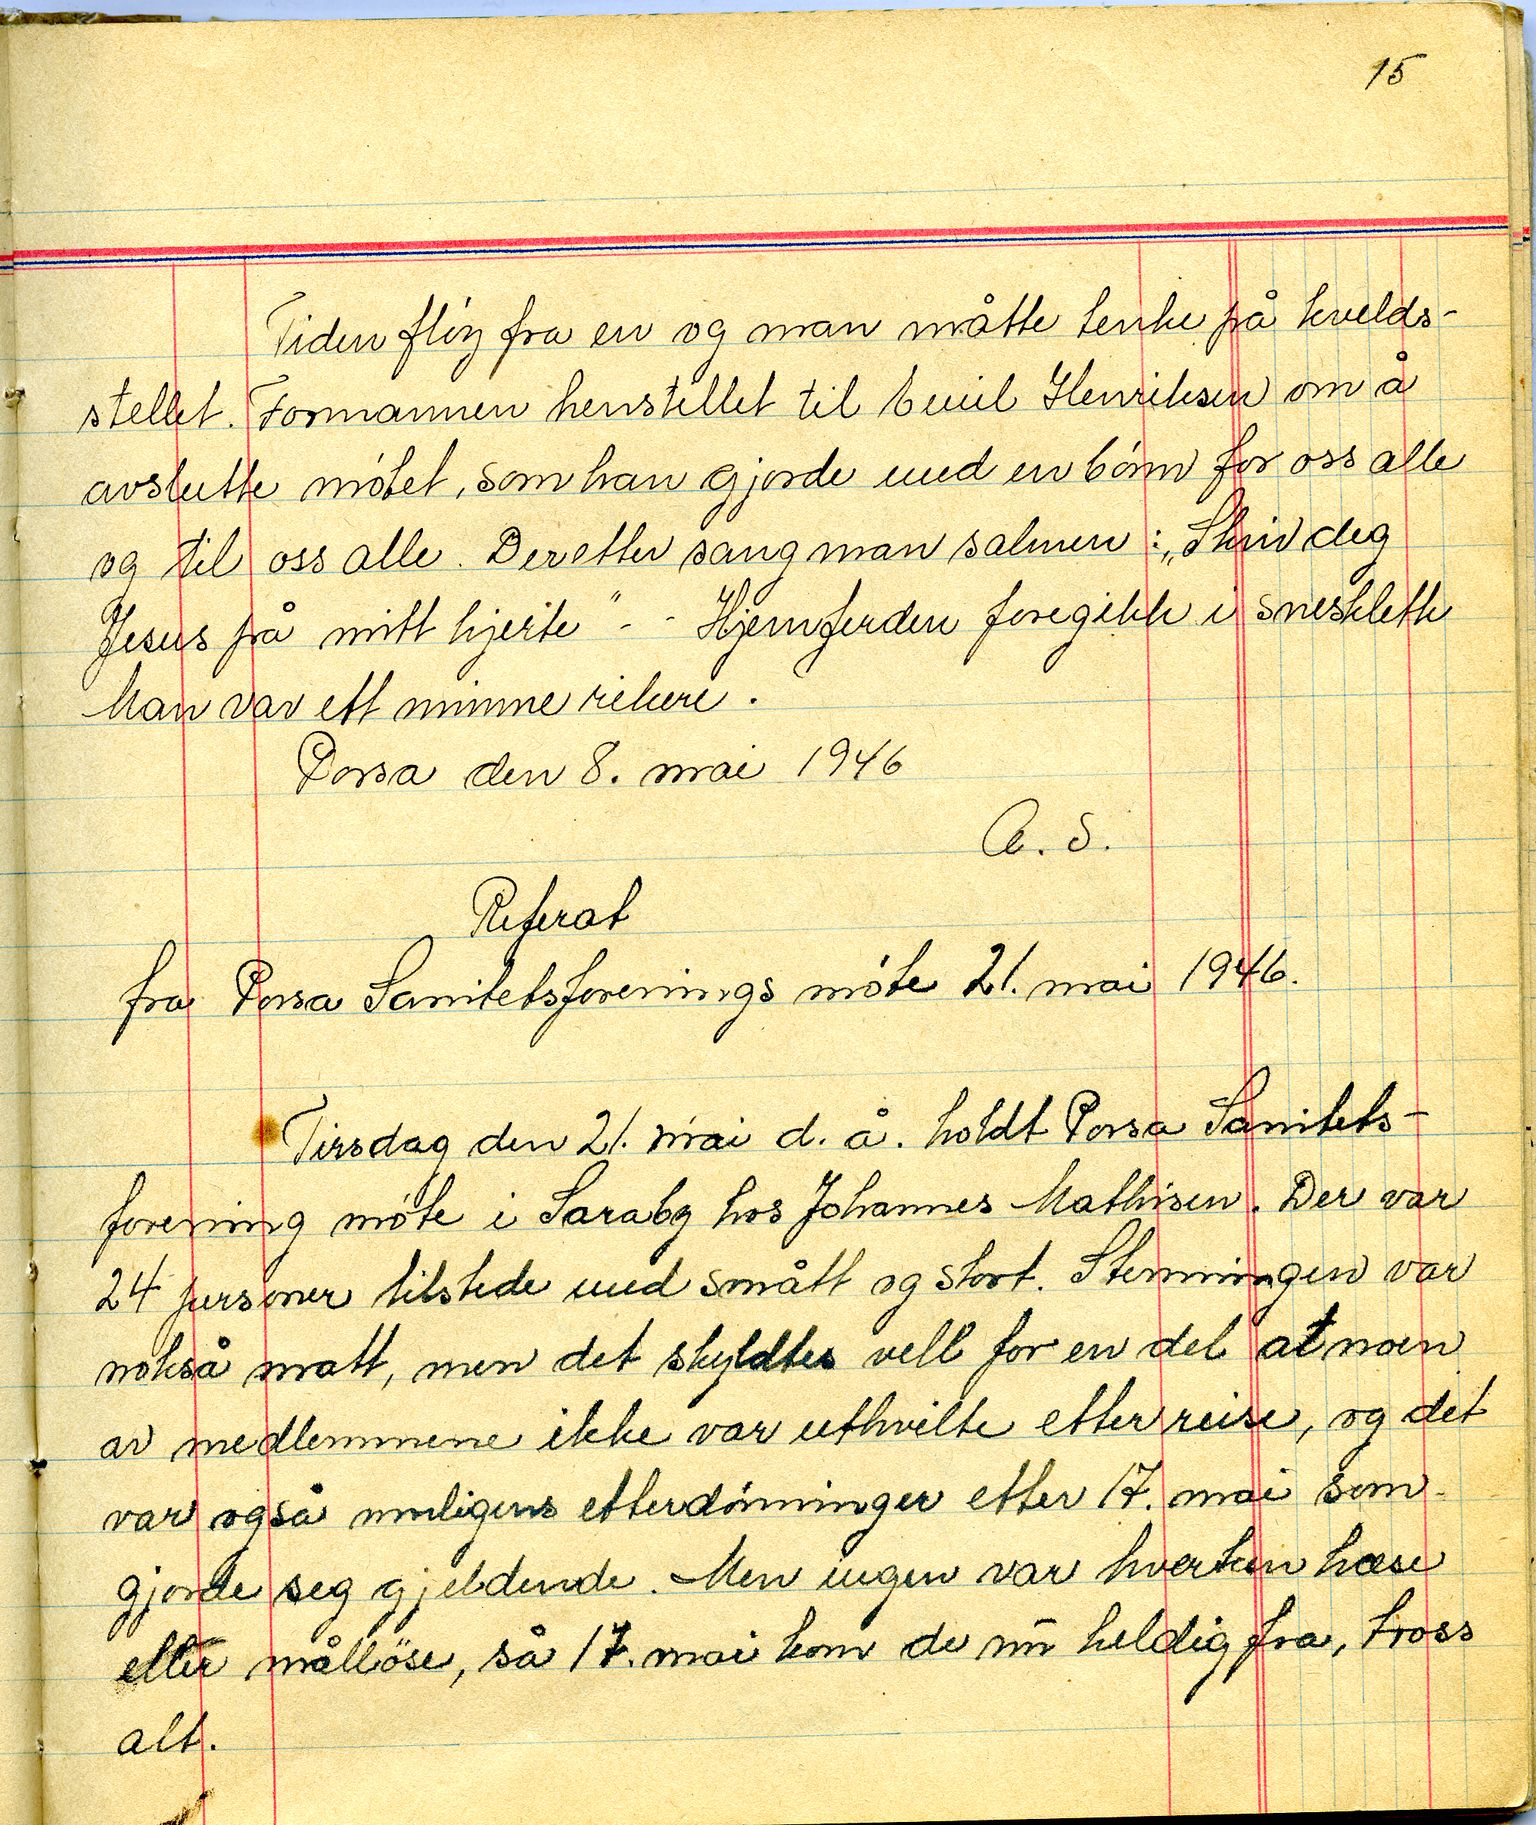 15
Tiden fløy fra en og man måtte tenke på kvelds-
stellet. Formannen henstillet til Emil Henriksen om å
avslutte møtet, som han gjorde med en bønn for oss alle
og til oss alle. Deretter sang man salmen: „Skriv deg
Jesus på mitt hjerte" - - Hjemferden foregikk i sneslette
Man var ett minne rikere.
Porsa den 8. mai 1946
A. S.
Referat
fra Porsa Sanitetsforenings møte 21. mai 1946.
Tirsdag den 21. mai d. å. holdt Porsa Sanitets-
forening møte i Saraby hos Johannes Mathisen. Der var
24 personer tilstede med smått og stort. Stemningen var
nokså matt, men det skyldtes vell for en del at noen
av medlemmene ikke var uthvilte etter reise, og det
var også muligens etterdønninger etter 17. mai som
gjorde seg gjeldende. Men ingen var hverken hæse
eller målløse, så 17. mai kom de nu heldig fra, tross
alt.